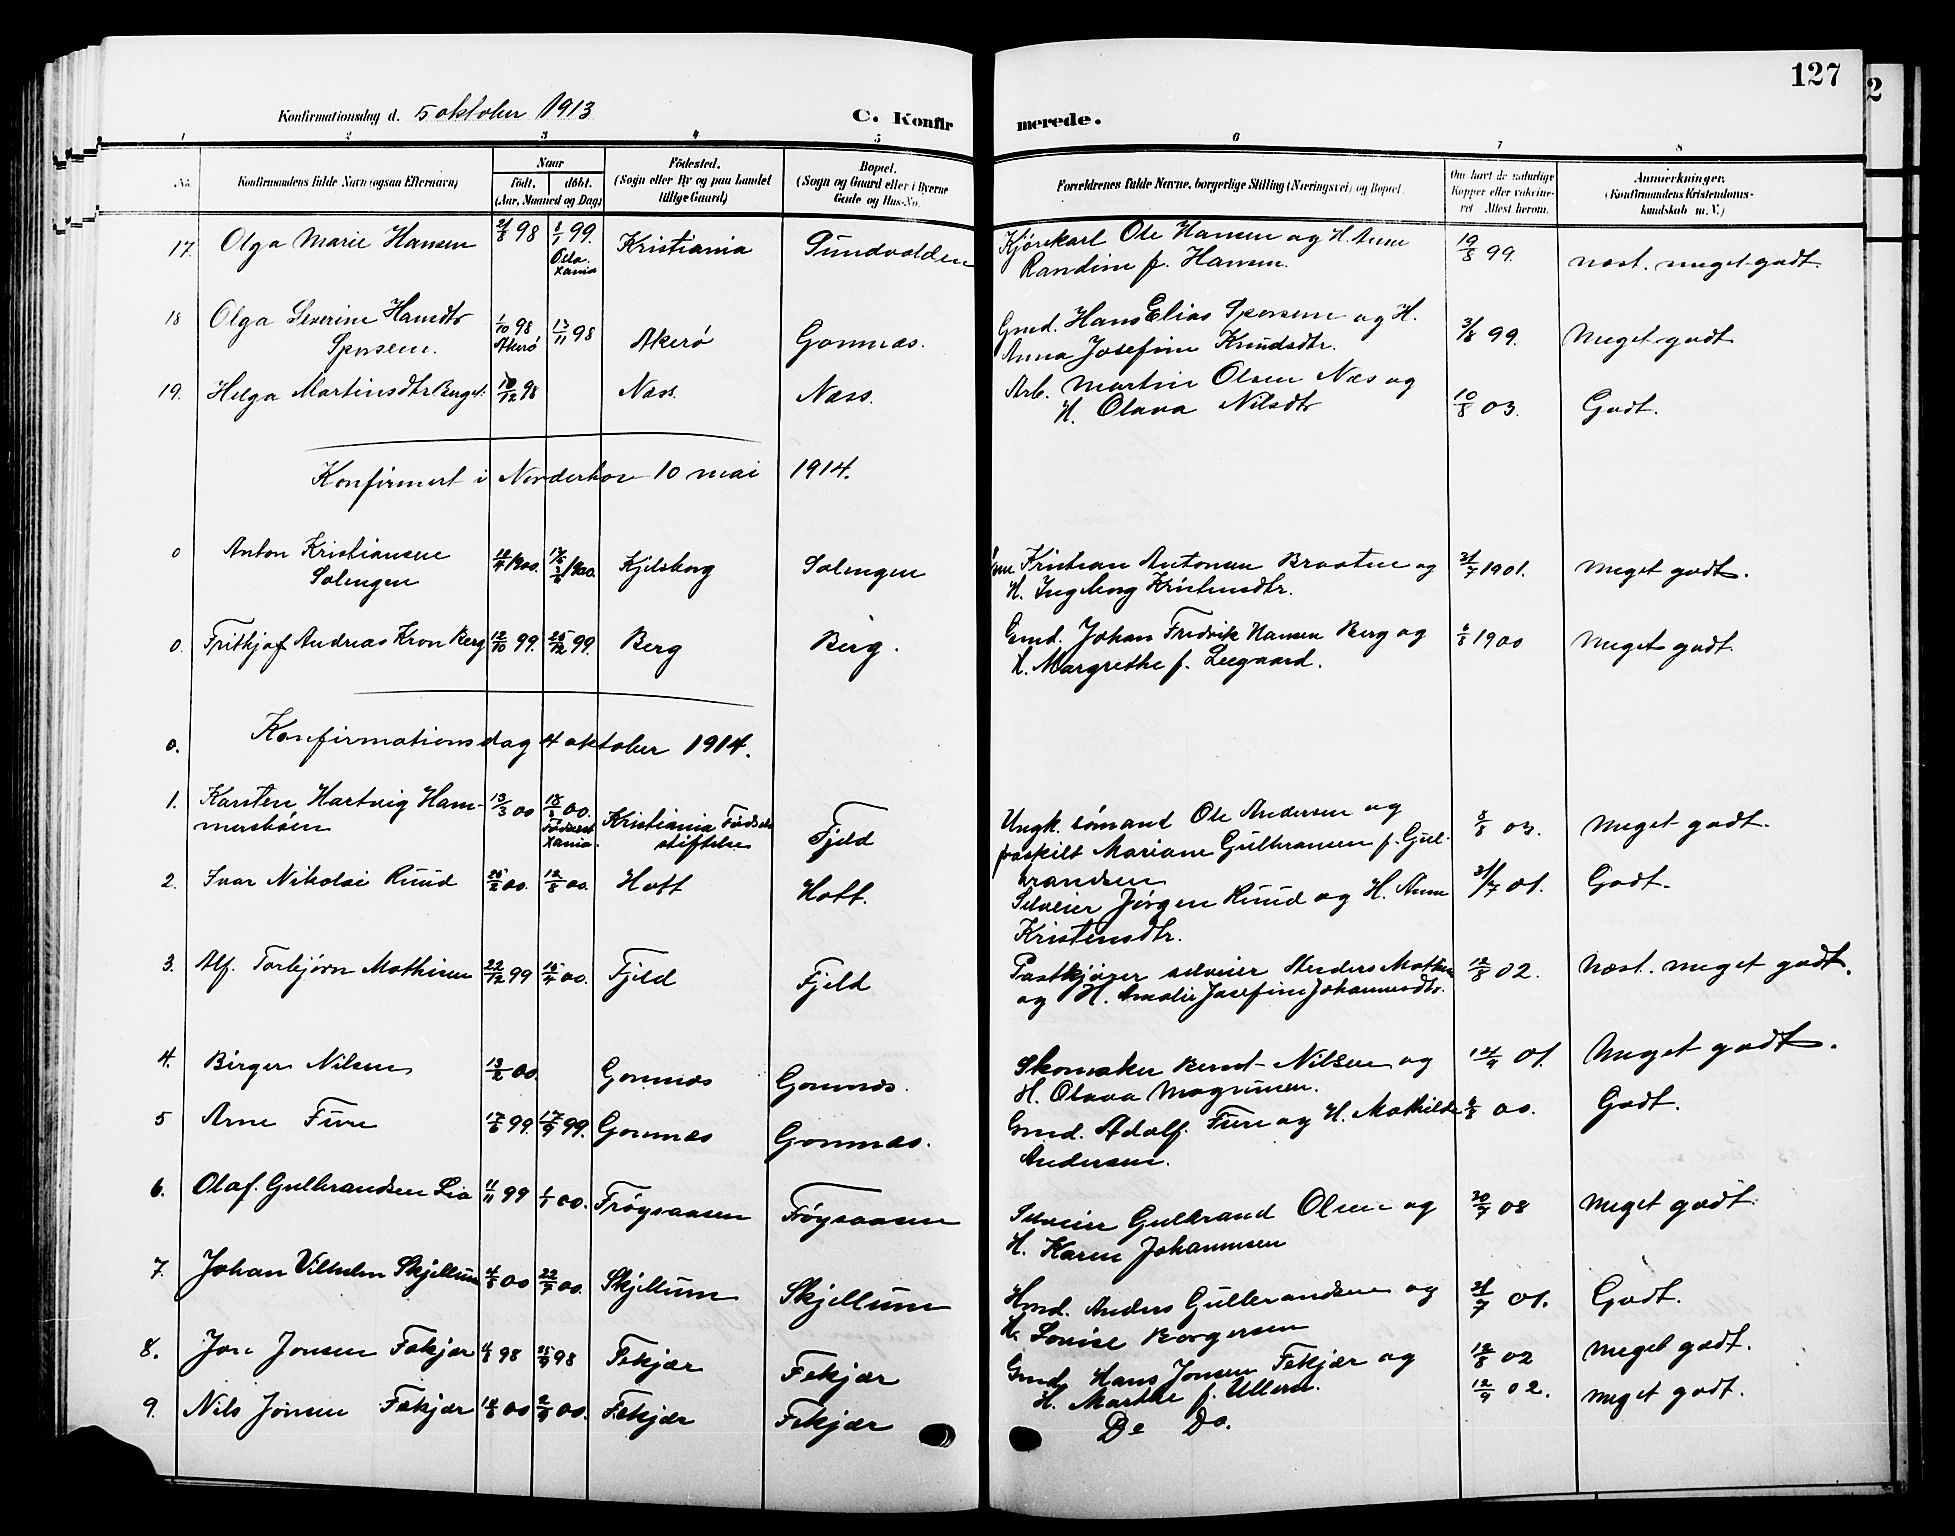 127
2
Konfirmationsdag d. 5 oktober 1913
C. Konfirmerede.
1 2 3 4 5 6 7 8
No. Konfirmandens fulde Navn (ogsaa Efternavn)
Naar
født. døbt.
(Aar, Maaned og Dag)
Fødested.
(Sogn eller By og paa Landet
tillige Gaard)
Bopæl.
(Sogn og Gaard eller i Byerne
Gade og Hus-No.
Forældrenes fulde Navne, borgerlige Stilling (Næringsvei) og Bopæl.
Om havt de naturlige
Kopper eller vakcineret
Attest herom.
Anmærkninger.
(Konfirmandens Kristendomskundskab
m. V.)
17. Olga Marie Hansen 98 99. Kristiania Sundvolden Kjørekarl Ole Hansen og H. Anne 19/8 99. næst. meget godt.
Oslo. Xania Randine f. Hansen.
18 Olga Severine Hansdtr 1/10 98 13/11 98 Akerø Gomnæs. Gmd. Hans Elias Syversen og H. 3/8 99. Meget godt
Akerø Anna Josefine Knudsdtr.
19. Helga Martinsdtr 10/12 98 Næss. Næss. Arb. Martin Olsen Næs og 10/8 03. Godt.
H. Olava Nilsdtr
Konfirmert i Norderhov 10 mai 1914.
0 Anton Kristiansen 1900. 1900. Kjelsberg Solengen Kristian Antonsen Braaten og 31/7 1901. Meget godt.
Solengen H. Ingeborg Kristensdtr.
0. Fritkjof Andreas Kron Berg 12/10 99. 25/12 99. Berg Berg. Gmd. Johan Fredrik Hansen Berg og 1900 Meget godt.
H. Margrethe f. Leegaard.
0. Konfirmationsdag 4 oktober 1914.
1. Karsten Hartvig Ham- 13/3 00 18/3 00. Kristiania Fødsels Fjeld Ungk. sømand Ole Andersen og 8/8 03. Meget godt.
mersbøen Fødselsst. Xania. stiftelse fraskilt Mariane Gulbransen f. Gul-
brandsen
2. Ivar Nikolai Ruud 25/2 00. 12/8 00. Hoff Hoff. Selveier Jørgen Ruud og H. Anne 31/7 01. Godt.
Kristensdtr.
3. Alf. Torbjørn Mathisen 22/12 99 15/4 00. Fjeld Fjeld Postkjører selveier Mathis 12/8 02. Næst. meget godt.
og H. Amalie Josefine Johannesdtr.
4. Birger Nilsen 13/2 00. Gomnæs Gomnæs. Skomaker Bernt Nilsen og 01. Meget godt.
H. Olava Magnusen.
5 Arne Fure 17/6 99. 17/9 99. Gomnæs Gomnæs. Gmd. Adolf. Fure og H. Mathilde 00. Godt.
Andersen.
6. Olaf. Gulbrandsen Lia 11/11 99 1/1 00. Frøysaasen Frøysaasen Selveier Gulbrand Olsen og 30/7 08 Meget godt.
H. Karen Johannesen
7. Johan Vilhelm Skjellum 4/5 00 22/7 00. Skjellum Skjellum Hmd. Anders Gulbrandsen og 31/7 01. Godt.
H. Louise Borgersen
8. Jon Jonsen Fekjær 98 25/9 98 Fekjær Fekjær Gmd Hans Jonsen Fekjær og 12/8 02 Meget godt.
H. Marthe f. Ullern.
9. Nils Jonsen Fekjær 00 00. Fekjær Fekjær Do Do. 12/9 02. Meget godt.